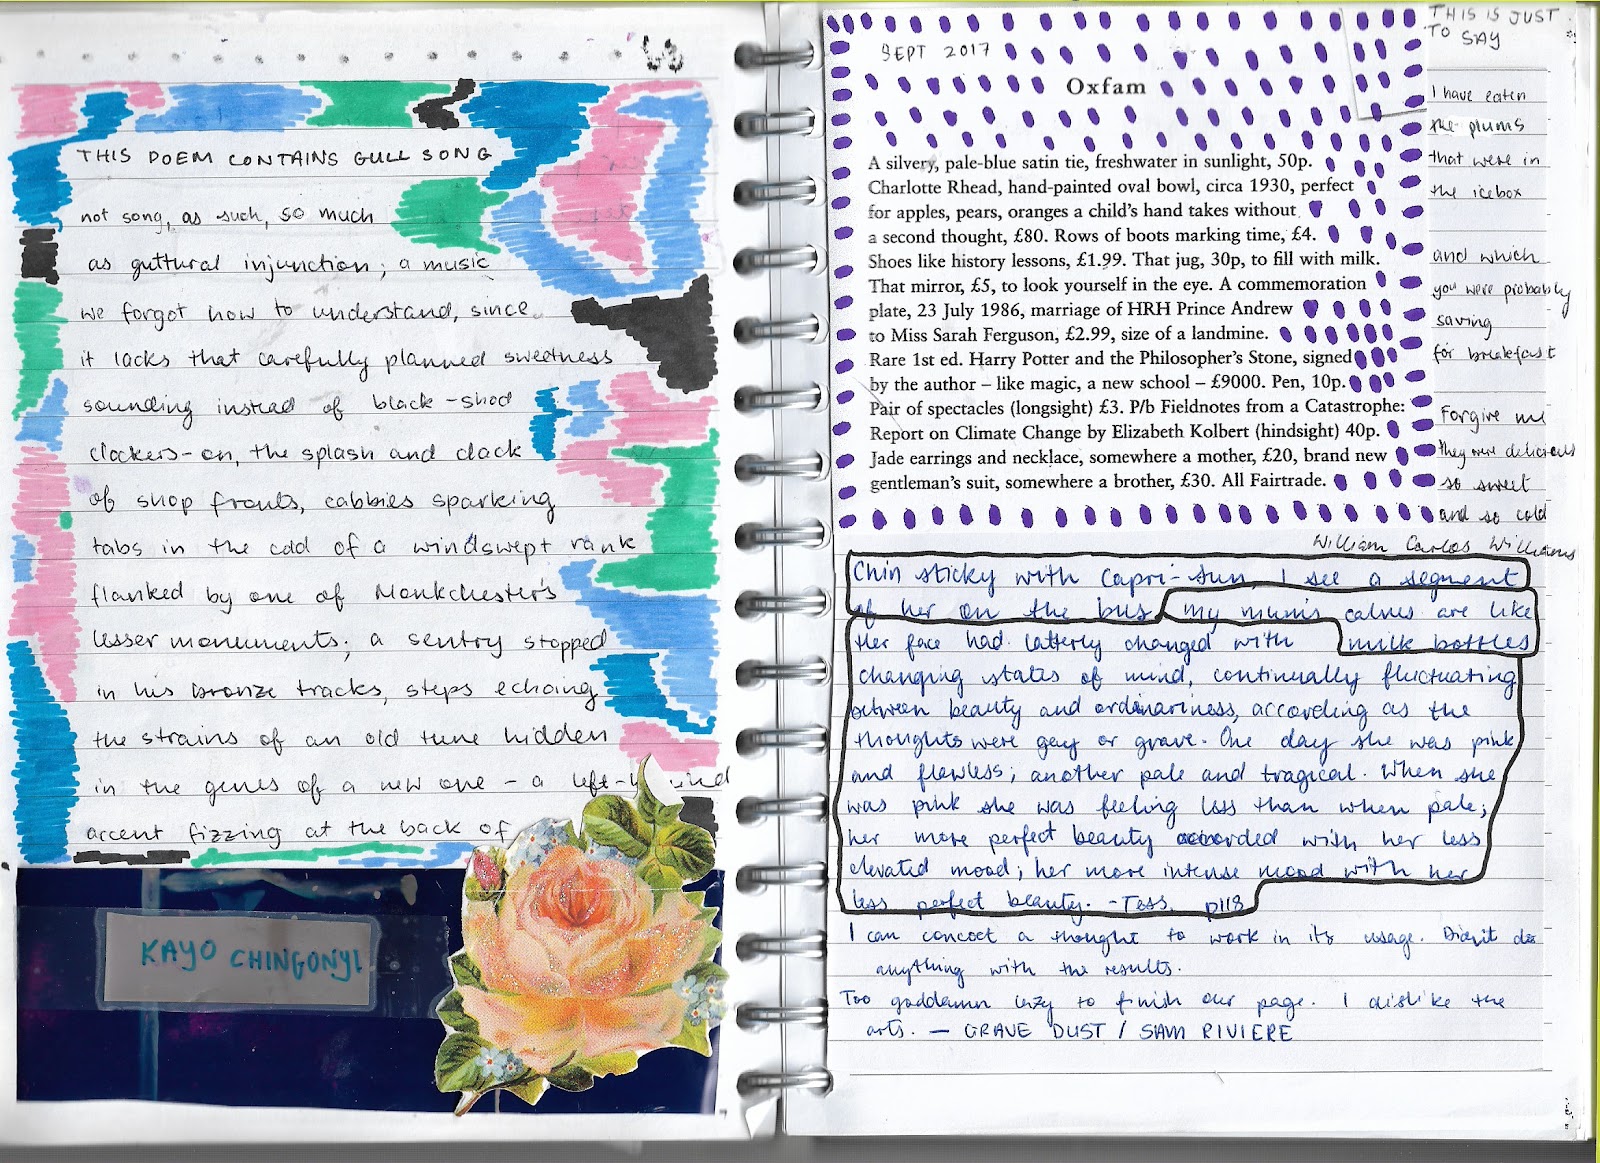 THIS POEM CONTAINS GULL SONG
not song, as such, so much
as guttural injunction; a music
we forgot how to understand, since
it lacks that carefully planned sweetness
sounding instead of black-shod
clockers-on, the splash and clack
of shop fronts, cabbies sparking
tabs in the cold of a windswept rank
flanked by one of Monkchester's
lesser monuments; a sentry stopped
in his bronze tracks, steps echoing
the strains of an old tune hidden
in the genes of a new one – a left-wind
accent fizzing at the back of
KAYO CHINGONYI
SEPT 2017
Oxfam
A silvery, pale-blue satin tie, freshwater in sunlight, 50p.
Charlotte Rhead, hand-painted oval bowl, circa 1930, perfect
for apples, pears, oranges a child's hand takes without
a second thought, £80. Rows of boots marking time, £4.
Shoes like history lessons, £1.99. That jug, 30p, to fill with milk.
That mirror, £5, to look yourself in the eye. A commemoration
plate, 23 July 1986, marriage of HRH Prince Andrew
to Miss Sarah Ferguson, £2.99, size of a landmine.
Rare 1st ed. Harry Potter and the Philosopher's Stone, signed
by the author – like magic, a new school – £9000. Pen, 10p.
Pair of spectacles (longsight) £3. P/b Fieldnotes from a Catastrophe:
Report on Climate Change by Elizabeth Kolbert (hindsight) 40p.
Jade earrings and necklace, somewhere a mother, £20, brand new
gentleman's suit, somewhere a brother, £30. All Fairtrade.
THIS IS JUST
TO SAY
I have eaten
the plums
that were in
the icebox
and which
you were probably
saving
for breakfast
Forgive me
they were delicious
so sweet
and so cold
William Carlos Williams
Chin sticky with Capri-sun, I see a segment
of her on the bus
my mum's calves are like
milk bottles
Her face had latterly changed with
changing states of mind, continually fluctuating
between beauty and ordinariness, according as the
thoughts were gay or grave. One day she was pink
and flawless; another pale and tragical. When she
was pink she was feeling less than when pale;
her more perfect beauty accorded with her less
elevated mood; her more intense mood with her
less perfect beauty. - Tess, p118
I can concoct a thought to work in its usage. Didn't do
anything with the results.
Too goddamn lazy to finish our page. I dislike the
arts. — GRAVE DUST / SAM RIVIERE